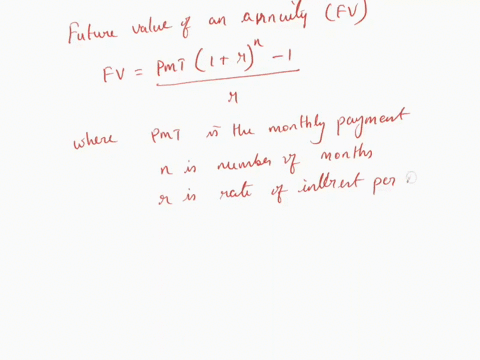 Future value of an annuity (FV)
FV = PMT (1 + r)^n - 1
r
where PMT is the monthly payment
n is number of months
r is rate of interest per